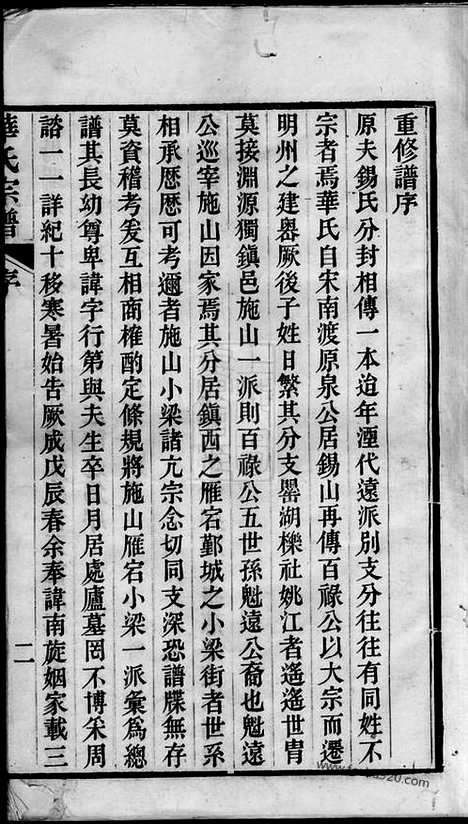 重修譜序
原夫錫氏分封相傳一本迨年湮代遠派別支分往往有同姓不
宗者焉華氏自宋南渡原泉公居錫山再傳百祿公以大宗而遷
明州之建嶴厥後子姓日繁其分支罌湖櫟社姚江者遙遙世胄
莫接淵源獨鎮邑施山一派則百祿公五世孫魁遠公裔也魁遠
公巡宰施山因家焉其分居鎮西之雁宕鄞城之小梁街者世系
相承歷歷可考邇者施山小梁諸亢宗念切同支深恐譜牒無存
莫資稽考爰互相商榷酌定條規將施山雁宕小梁一派彙為總
譜其長幼尊卑諱字行第與夫生卒日月居處廬墓罔不博采周
諮一一詳紀十移寒暑始告厥成戊辰春余奉諱南旋姻家載三
華氏宗譜
序
二